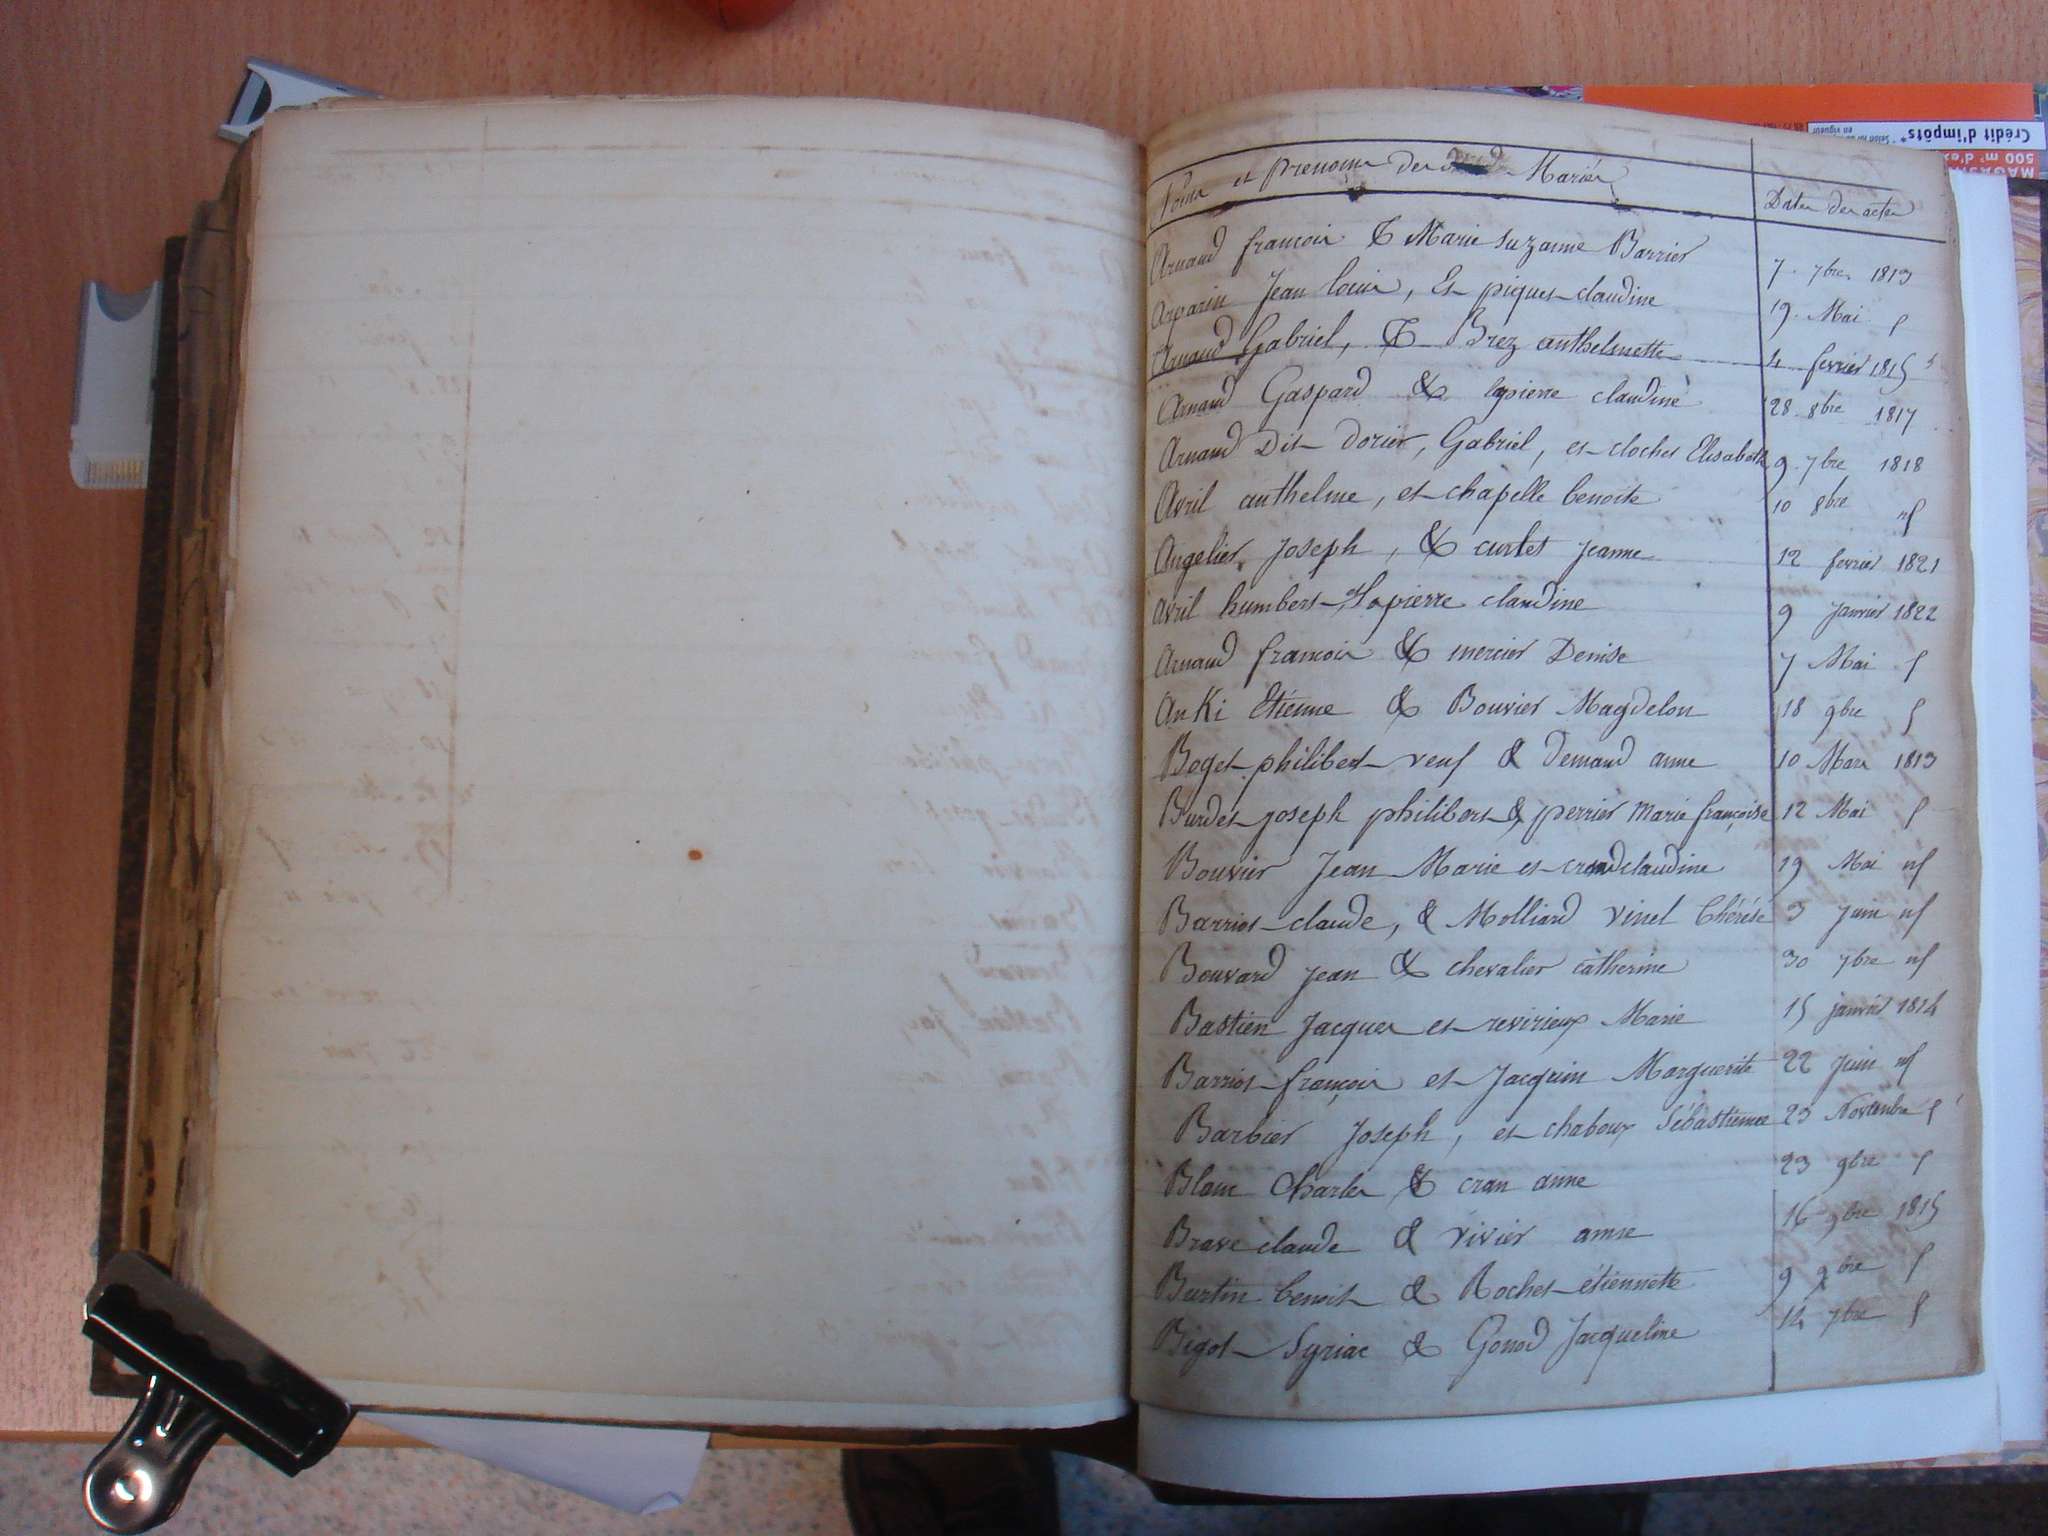 Noms et prenoms des Mariés
Dates des actes
Arnaud francois & Marie Suzanne Barrier 7. 7bre. 1813
Arparin Jean louis, Et piquet claudine 19. Mai
Arnaud Gabriel, & Brez anthelmette 4 fevrier 1815
Arnaud Gaspard & lapierre claudine 28. 8bre 1817
Arnaud Dit dorier, Gabriel, et clochet Elisabeth 9. 7bre 1818
Avril anthelme, et chapelle benoite 10 8bre
Angelier Joseph, & curtet jeanne 12 fevrier 1821
Avril humbert et Lapierre claudine 9 janvier 1822
Arnaud francois & mercier Denise 7 Mai
AnKi Etienne & Bouvier Magdelon 18 9bre
Boget philibert veuf & demand anne 10 Mars 1813
Burdet joseph philibert & perrier Marie françoise 12 Mai
Bouvier Jean Marie et claudine 19 Mai
Barriot claude, & Molliard vinet thérése 3 juin
Bouvard jean & chevalier catherine 30 7bre
Bastien Jacques et revirieux Marie 15 janvier 1814
Barriot françois et Jacquin Marguerite 22 juin
Barbier Joseph, et chaboux Sébastienne 23 Novembre
Blanc Charles & cran anne 23 9bre
Brave claude & vivier anne 16 9bre 1815
Burtin benoit & Rochet étiennette 9 9bre
Bigot Syriac & Gonod Jacqueline 14 7bre
Crédit d'impôts*
* Selon loi
en vigueur
500 m² d'ex
MAGAS